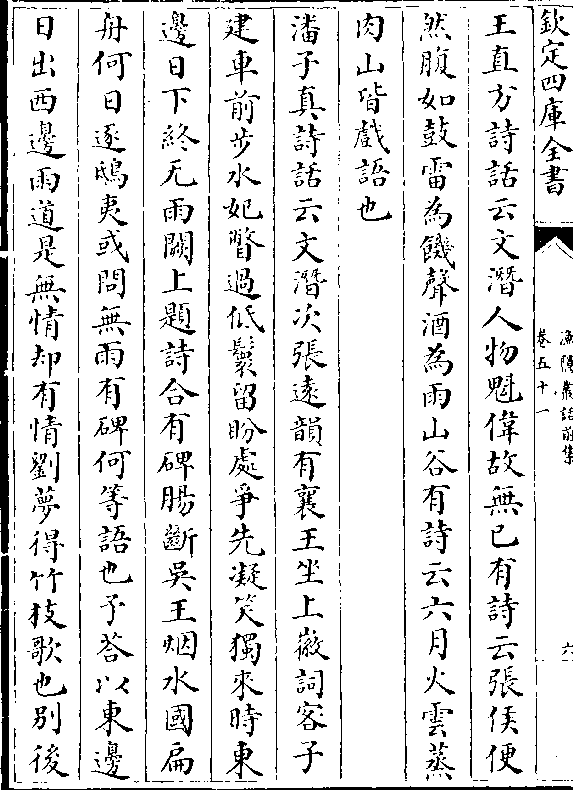 欽定四庫全書
漁隠叢話前集
卷五十一
六
王直方詩話云文潛人物魁偉故無已有詩云張侯便
然腹如鼓雷為饑聲酒為雨山谷有詩云六月火雲蒸
肉山皆戲語也
潘子真詩話云文潛次張遠韻有襄王坐上徵詞客子
建車前步水妃瞥過低鬟留盼處爭先凝笑獨來時東
邊日下終无雨闕上題詩合有碑腸斷吳王烟水國扁
舟何日逐鴟夷或問無雨有碑何等語也予荅以東邊
日出西邊雨道是無情却有情劉夢得竹枝歌也别後